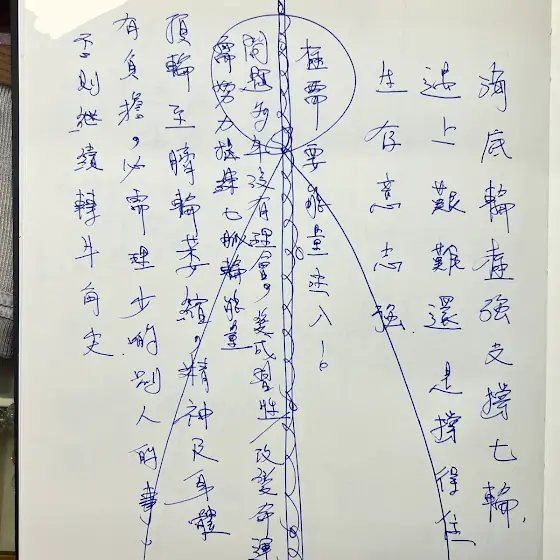 海底輪極強支撐七輪,
遇上艱難還是撐得住
生存意志強.
極需要能量注入!。
問題多年沒有理會,變成習性/改變命運
需努力旋轉七脈輪能量
頂輪至臍輪萎縮,精神及身體
有負擔,必需理少啲別人的事
否則繼續轉牛角尖.